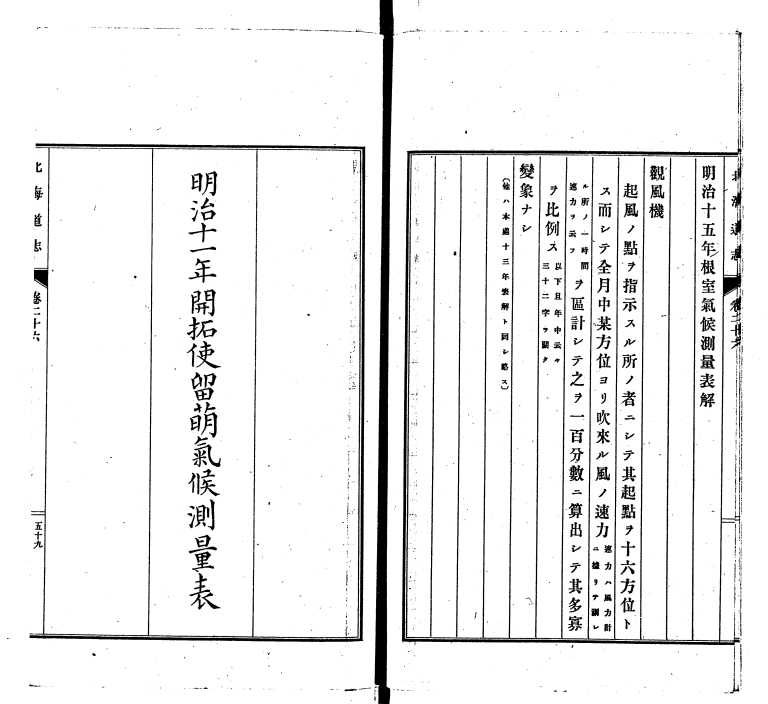 北海道志 卷二十六
明治十五年根室氣候測量表解
觀風機
起風ノ點ヲ指示スル所ノ者ニシテ其起點ヲ十六方位ト
ス而シテ全月中某方位ヨリ吹來ル風ノ速力速力ハ風力計ニ據リテ測レ
ル所ノ一時間速力ヲ云フヲ區計シテ之ヲ一百分數ニ算出シテ其多寡
ヲ比例ス以下且年中云々三十二字ヲ闕ク
變象ナシ
(他ハ本處十三年表解ト同シ略ス)
明治十一年開拓使留萌氣候測量表
北海道志 卷二十六
五十九